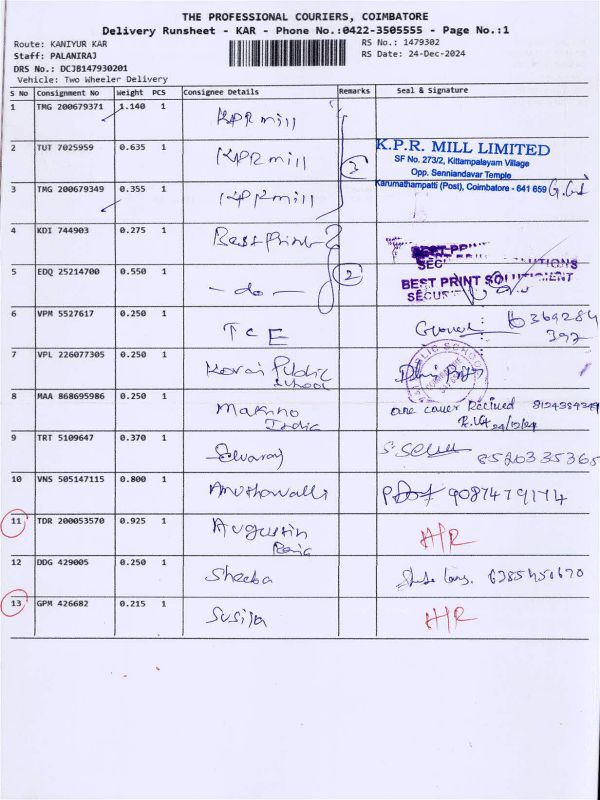 THE PROFESSIONAL COURIERS, COIMBATORE
Delivery Runsheet - KAR - Phone No.:0422-3505555 - Page No.:1
Route: KANIYUR KAR
RS No.: 1479302
Staff: PALANIRAJ
RS Date: 24-Dec-2024
DRS No.: DCJB147930201
Vehicle: Two Wheeler Delivery
S No Consignment No Weight PCS Consignee Details Remarks Seal & Signature
1 TMG 200679371 1.140 1 KPR mill
2 TUT 7025959 0.635 1 KPR mill 3
K.P.R. MILL LIMITED
SF No. 273/2, Kittampalayam Village
Opp. Senniandavar Temple
Karumathampatti (Post), Coimbatore - 641 659
3 TMG 200679349 0.355 1 KPR mill
4 KDI 744903 0.275 1 Best Print
5 EDQ 25214700 0.550 1 - do - 2
BEST PRINT SOLUTIONS
6 VPM 5527617 0.250 1 TCE
7 VPL 226077305 0.250 1 Public
School
8 MAA 868695986 0.250 1 Makino
India
one cover Recived
24/12/24
9 TRT 5109647 0.370 1 Selvaraj 8520335365
10 VNS 505147115 0.800 1 9087479174
11 TDR 200053570 0.925 1 Augustin
A/R
12 DDG 429005 0.250 1 Sheeba
13 GPM 426682 0.215 1 Susila A/R